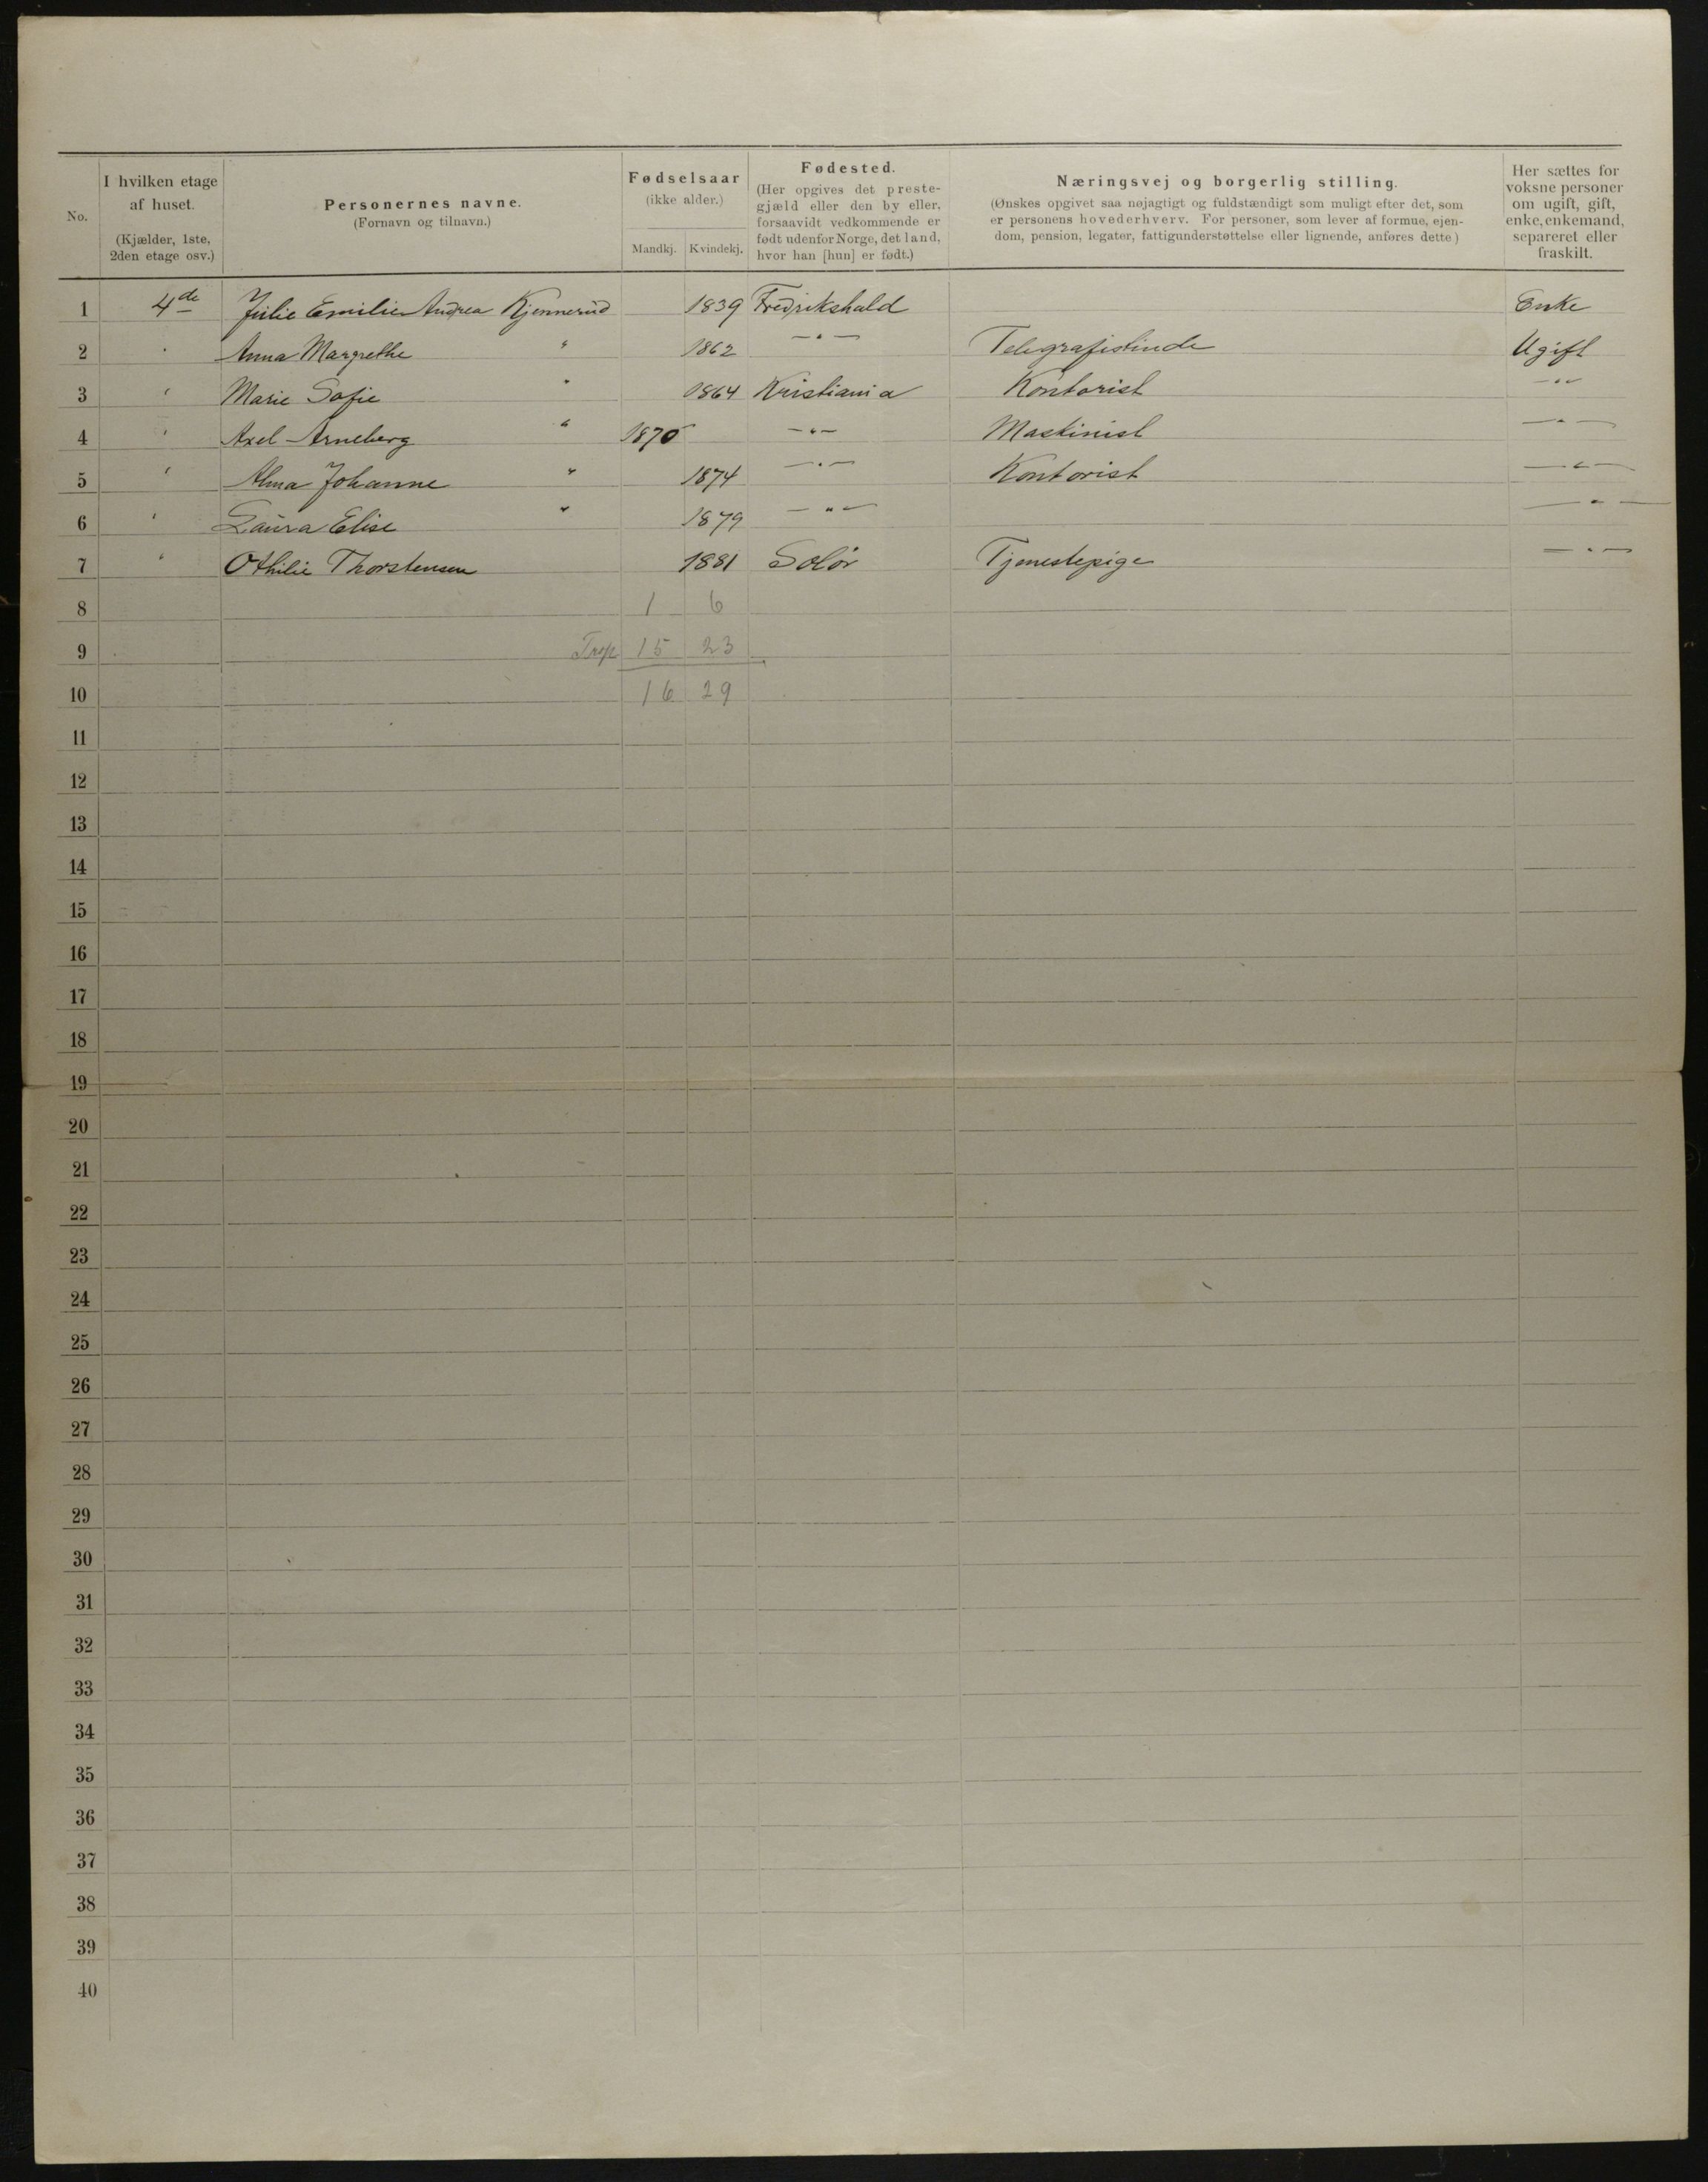 No.
I hvilken etage af huset. (Kjælder, 1ste, 2den etage osv.)
Personernes navne. (Fornavn og tilnavn.)
Fødselsaar (ikke alder.)
Mandkj. Kvindekj.
Fødested. (Her opgives det prestegjæld eller den by eller, forsaavidt vedkommende er født udenfor Norge, det land, hvor han [hun] er født.)
Næringsvej og borgerlig stilling.
(Ønskes opgivet saa nøjagtigt og fuldstændigt som muligt efter det, som
er personens hovederhverv. For personer, som lever af formue, ejen-
dom, pension, legater, fattigunderstøttelse eller lignende, anføres dette)
Her sættes for voksne personer om ugift, gift, enke, enkemand, separeret eller fraskilt.
1 4de Julie Emilie Andrea Kjennerud 1839 Fredrikshald Enke
2 " Anna Margrethe " 1862 —"— Telegrafistinde Ugift
3 " Marie Sofie " 1864 Kristiania Kontorist —"—
4 " Axel Arneberg " 1870 —"— Maskinist —"—
5 " Alma Johanne " 1874 —"— Kontorist —"—
6 " Laura Elise " 1879 —"— —"—
7 " Othilie Thorstensen 1881 Solør Tjenestepige —"—
8 1 6
9 Trsp. 15 23
10 16 29
11
12
13
14
15
16
17
18
19
20
21
22
23
24
25
26
27
28
29
30
31
32
33
34
35
36
37
38
39
40